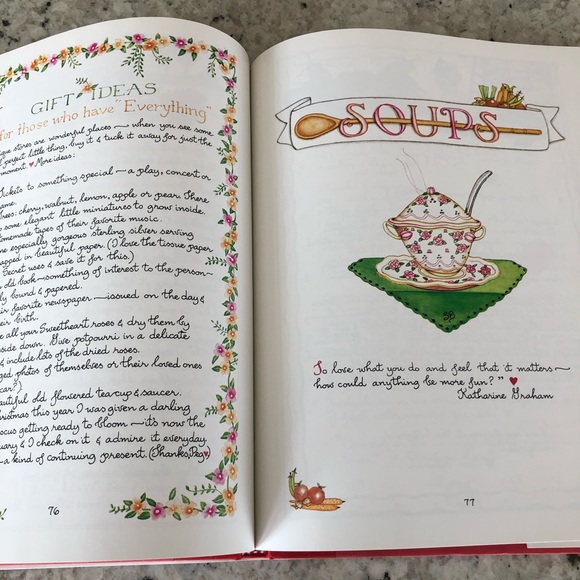 GIFT IDEAS
for those who have "Everything"
ique stores are wonderful places — when you see some
perfect little thing, buy it & tuck it away for just the
moment. ♥ More ideas:
Tickets to something special — a play, concert or
ame.
rees: cherry, walnut, lemon, apple or pear. There
so some elegant little miniatures to grow inside.
omemade tapes of their favorite music.
ne especially gorgeous sterling silver serving
apped in beautiful paper. (I love the tissue paper
Secret uses & save it for this.)
old book—something of interest to the person—
ly bound & papered.
eir favorite newspaper — issued on the day &
eir birth.
e all your Sweetheart roses & dry them by
side down. Give potpourri in a delicate
& include lots of the dried roses.
ged photos of themselves or their loved ones
car?)
eautiful old flowered teacup & saucer.
hristmas this year I was given a darling
ocus getting ready to bloom — it's now the
uary & I check on it & admire it everyday
— a kind of continuing present. (Thanks, Peg.) ♥
76
SOUPS
SB
To love what you do and feel that it matters —
how could anything be more fun?" ♥
Katharine Graham
77